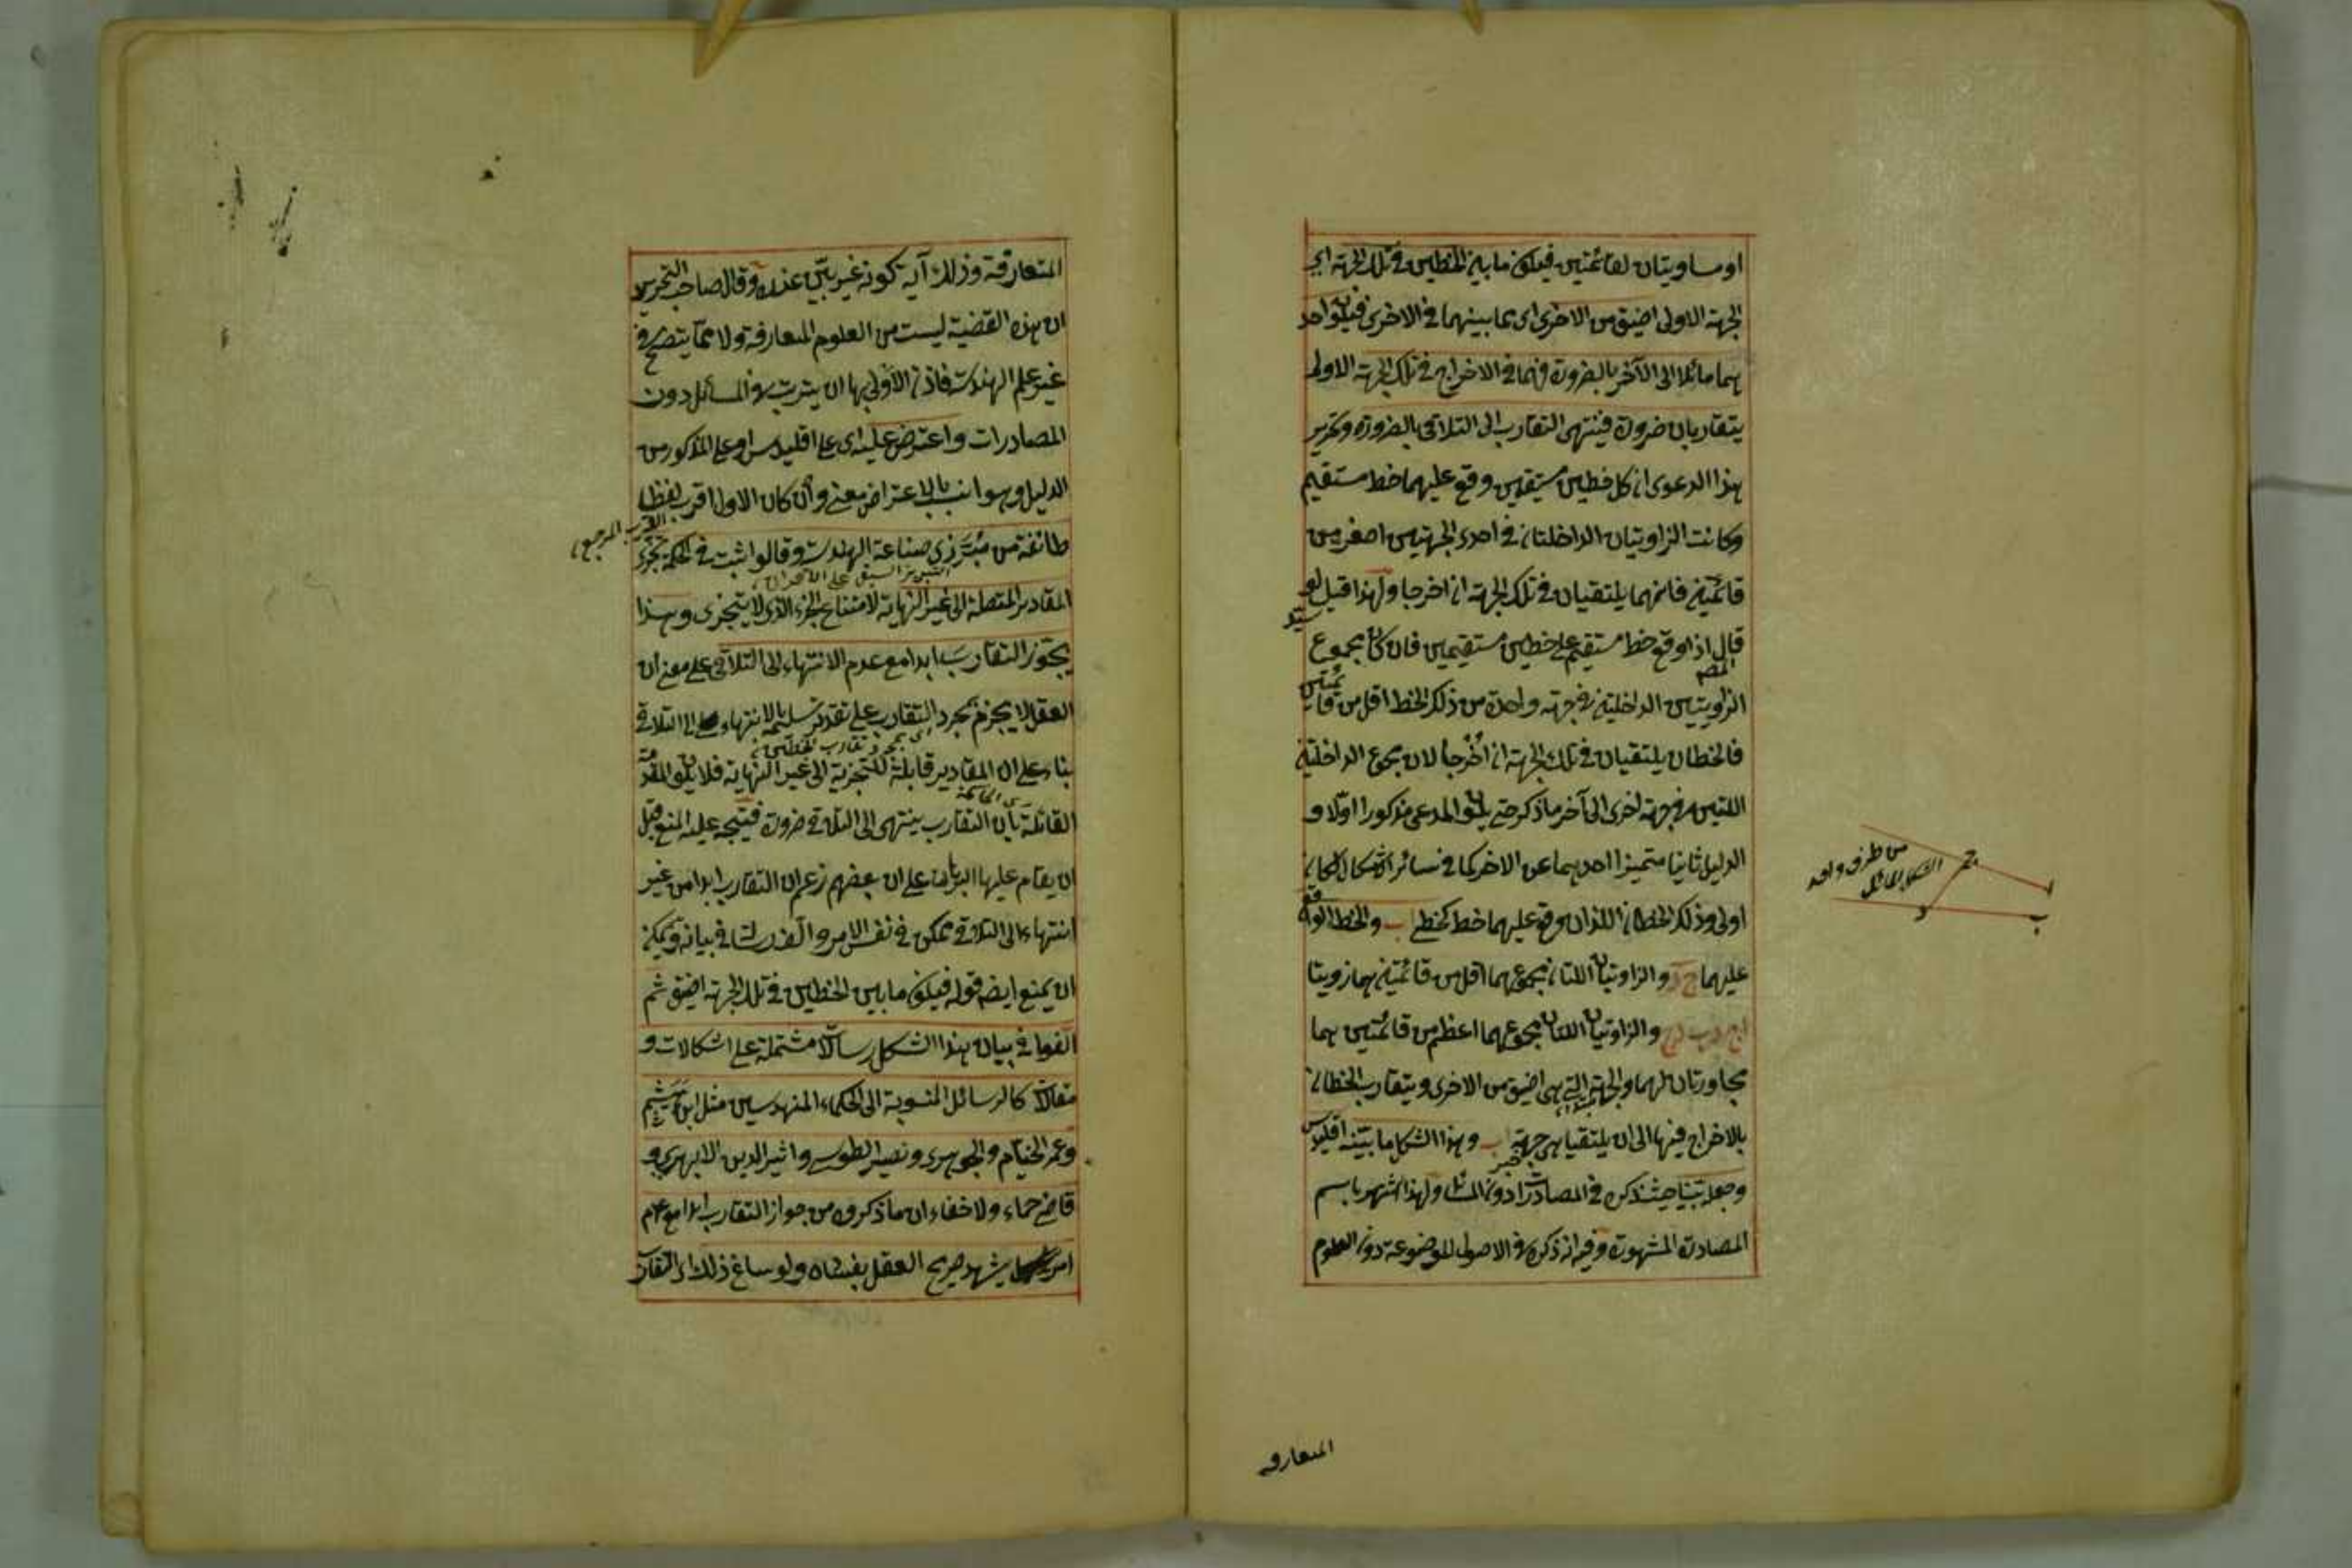 او مساويتان لقائمتين فيكون ما بين الخطين في تلك الجهة اي
الجهة الاولى اضيق من الاخرى اى مما بينهما في الاخرى فيكون احد
هما مائلا الى الآخر بالضرورة فهما في الاخراج في تلك الجهة الاولى
يتقاربان ضرورة فينتهى التقارب الى التلاقي بالضرورة وتحرير
هذا الدعوى ان كل خطين مستقيمين وقع عليهما خط مستقيم
وكانت الزاويتان الداخلتان في احدى الجهتين اصغر من
قائمتين فانهما يلتقيان في تلك الجهة ان اخرجا ولهذا قيل لو
قال المصـ اذا وقع خط مستقيم على خطين مستقيمين فان كان مجموع
الزاويتين الداخلتين في جهة واحدة من ذلك الخط اقل من قائمتين
فالخطان يلتقيان في تلك الجهة ان اُخرجا لان مجموع الداخلتين
اللتين في جهة اخرى الى آخر ما ذكر حتى يكون المدعى مذكورا اوّلا و
الدليل ثانيا متميزا احدهما عن الاخر كما في سائر الاشكال لكان
اولى وذلك الخطان اللذان وقع عليهما خط كخطي اب والخط الواقع
عليهما ج د والزاويتان اللتان مجموعهما اقل من قائمتين هما زاويتا
اج د ب د ج والزاويتان اللتان مجموعهما اعظم من قائمتين هما
مجاورتان لهما والجهة التي هي اضيق من الاخرى ويتقارب الخطان
بالاخراج فيها الى ان يلتقيا هي جهة اب وهذا الشكل ما بيّنه اقليدس
وجعله بيّنا حيث ذكره في المصادرات دون المسائل ولهذا اشتهر باسم
المصادرة المشهورة وفيه انه ذكره في الاصول الموضوعة دون العلوم
من طرف واحد
الشكل المائل
ج
ا
د
ب
المتعارفة
المتعارفة وذلك آية كونه غير بيّن عنده وقال صاحب التحرير
ان هذه القضية ليست من العلوم المتعارفة ولا ممّا يتضح في
غير علم الهندسة فاذن الأولى بها ان يترتب في المسائل دون
المصادرات واعترض عليه اى على اقليدس او على المذكور من
الدليل وهو انسب بالاعتراض معنى وان كان الاول اقرب لفظا
لقرب المرجع
طائفة من مُبَرَّزي صناعة الهندسة وقالوا ثبت في الحكمة تجزى
التبريز السبق على الاقران
المقادير المتصلة الى غير النهاية لامتناع الجزء الذي لا يتجزى وهذا
يجوّز التقارب ابدا مع عدم الانتهاء الى التلاقي على معنى ان
العقل لا يجزم بمجرد التقارب على تقدير تسليمه بالانتهاء الى التلاقي
اى بمجرد تقارب الخطين
بناء على ان المقادير قابلة للتجزية الى غير النهاية فلا يكون المقدمة
القائلة بان التقارب ينتهى الى التلاقي ضرورة فيتجه عليه المنع قبل
ان يقام عليها البرهان على ان بعضهم زعم ان التقارب ابدا من غير
انتهاء الى التلاقي ممكن في نفس الامر والّف رسالة في بيانه ويمكن
ان يمنع ايضا قوله فيكون ما بين الخطين في تلك الجهة اضيق ثم
الّفوا في بيان هذا الشكل رسائل مشتملة على اشكالات و
مقالات كالرسائل المنسوبة الى الحكماء المهندسين مثل ابن هَيثم
وعمر الخيّام والجوهري ونصير الطوسي واثير الدين الابهري و
قاضي حماء ولا خفاء ان ما ذكروه من جواز التقارب ابدا مع عدم
امر يشهد صريح العقل بفساده ولو ساغ ذلك اى التقارب